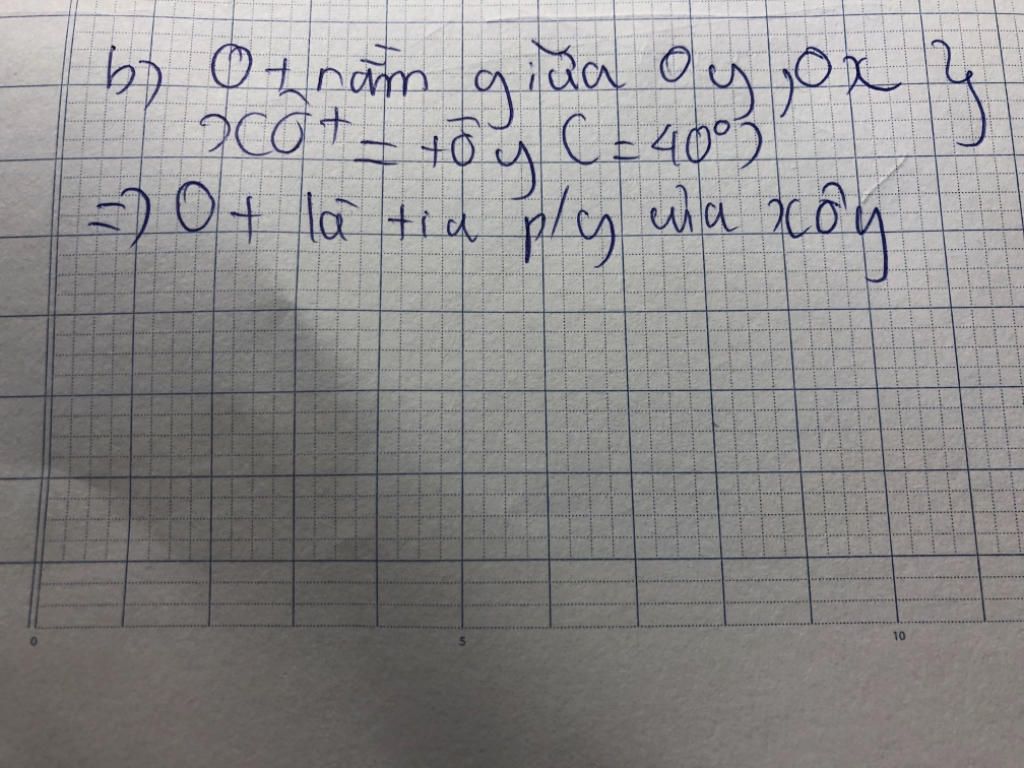 b) Ot nằm giữa Oy, Ox }
xÔt = tÔy (= 40°)
=> Ot là tia p/g của xÔy
0 5 10